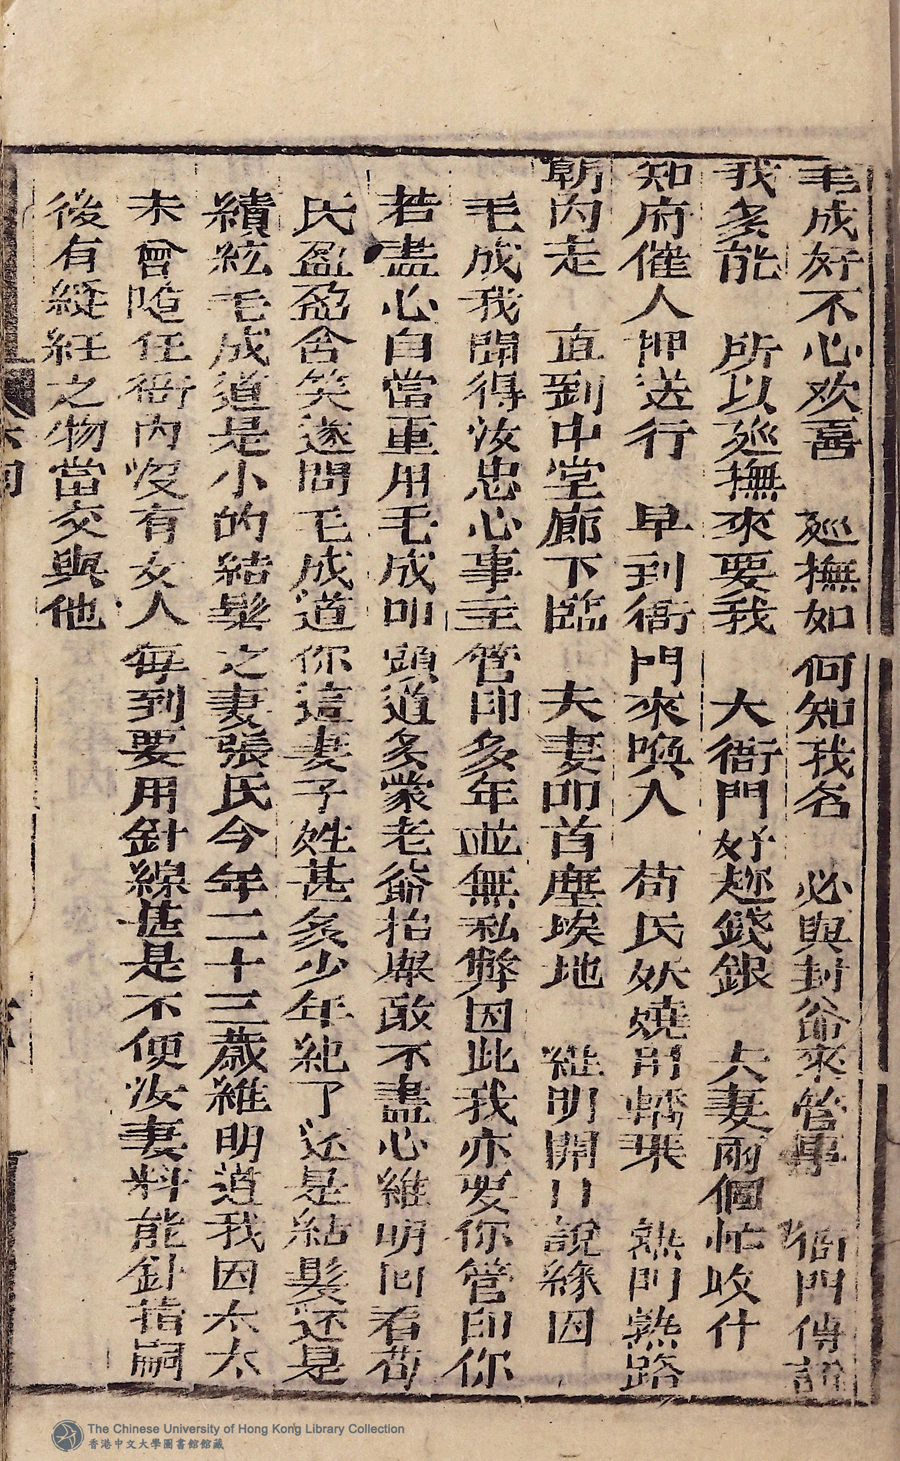 毛成好不心欢喜　廵撫如何知我名　必與封爺來管事　衙門傳說
我多能　所以廵撫來要我　大衙門好趂錢銀　夫妻兩個忙收什
知府催人押送行　早到衙門來喚人　苟氏妖嬈用轎乘　熟門熟路
朝內走　直到中堂廊下臨　夫妻叩首塵埃地　維明開口說緣因
毛成我聞得汝忠心事主管印多年並無私弊因此我亦要你管印你
若盡心自當重用毛成叩頭道多蒙老爺抬舉敢不盡心維明回看苟
氏盈盈含笑遂問毛成道你這妻子姓甚多少年紀了还是結髮还是
續絃毛成道是小的結髮之妻張氏今年二十三歲維明道我因太太
未曾隨任衙內沒有女人每到要用針線甚是不便汝妻料能針指嗣
後有縫紝之物當交與他
The Chinese University of Hong Kong Library Collection
香港中文大學圖書館館藏